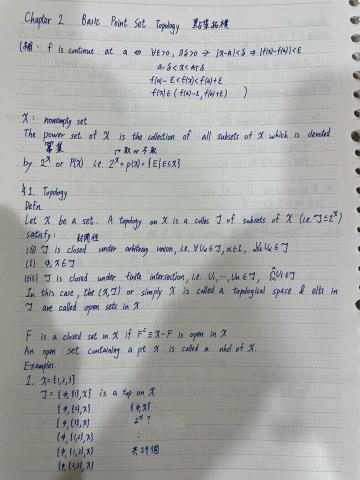 Chapter 2 Basic Point Set Topology 點集拓樸
(補: f is continue at a ⇔ ∀ε>0, ∃δ>0 ∋ |x-a|<δ ⇒ |f(x)-f(a)|<ε
a-δ<x<a+δ
f(a)-ε<f(x)<f(a)+ε
f(x)∈(f(a)-ε, f(a)+ε) )
X: nonempty set
The power set of X is the collection of all subsets of X which is denoted
冪集 取 or 不取
by 2^X or P(X) i.e. 2^X = P(X) = {E|E⊆X}
§1. Topology
Defn.
Let X be a set. A topology on X is a collec J of subsets of X (i.e. J⊆2^X)
satisfy: 封閉性
(ii) J is closed under arbitrary union, i.e. ∀Uα∈J, α∈I, ∪Uα∈J
(i) φ, X∈J
(iii) J is closed under finite intersection, i.e. U₁,…,Un∈J, ∩Ui∈J
In this case, the (X,J) or simply X is called a topological space & elts in
J are called open sets in X.
F is a closed set in X if F^c ≡ X-F is open in X
An open set containing a pt x is called a nhd of x.
Examples.
1. X={1,2,3}
J={φ,{1},X} is a top on X
{φ,{2},X} {φ,X}
{φ,{3},X} 2^X ?
{φ,{1,2},X} ⋮
{φ,{1,3},X} 共29個
{φ,{2,3},X}